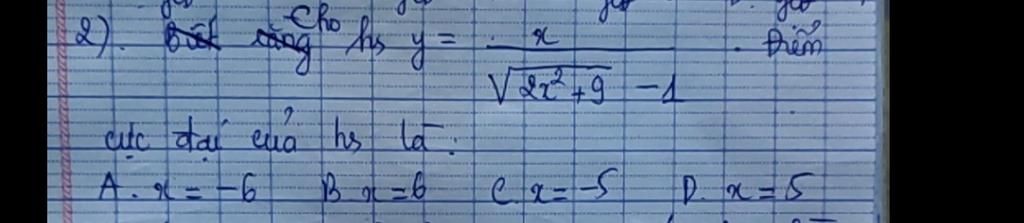 2). Biết rằng Cho hs y = x / √(2x²+9) - 1 . Điểm
cực đại của hs là:
A. x = -6 B x = 6 C. x = -5 D. x = 5